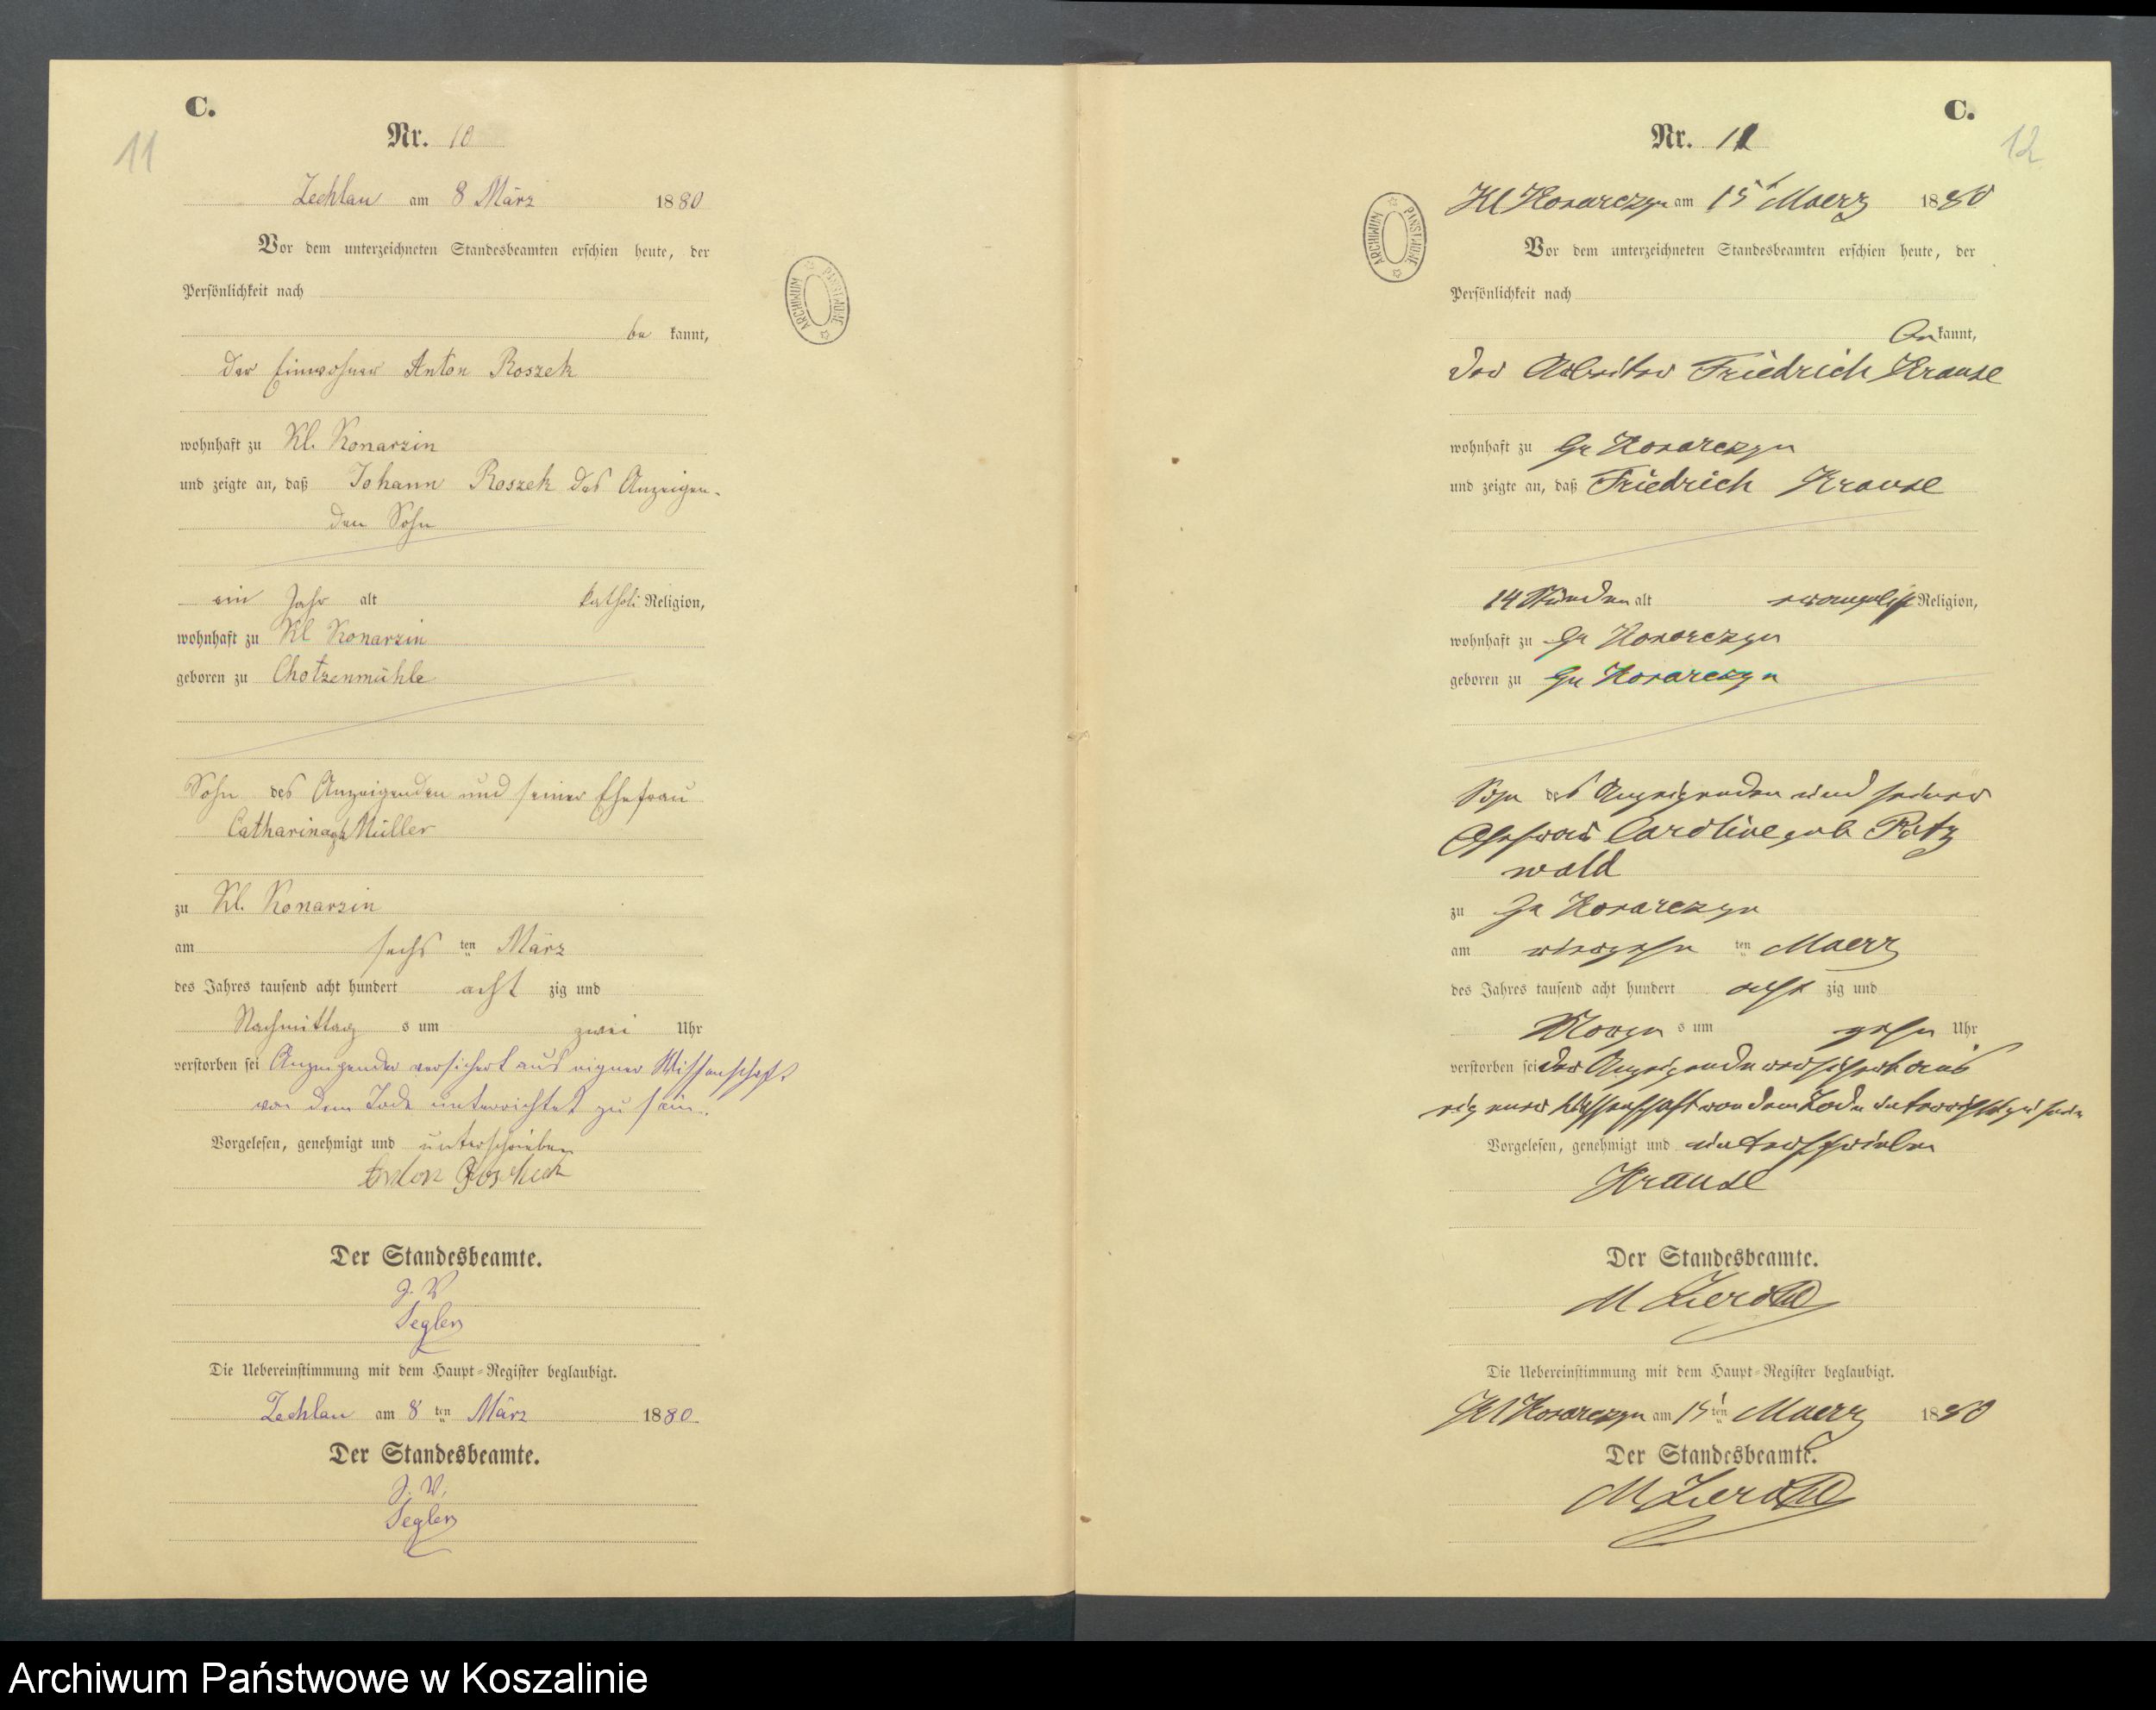 C.
11
Nr. 10
Zechlau am 8 März 1880
Vor dem unterzeichneten Standesbeamten erschien heute, der
Persönlichkeit nach
be kannt,
der Einwohner Anton Roszek
wohnhaft zu Kl. Konarzin
und zeigte an, daß Johann Roszek des Anzeigen-
den Sohn
ein Jahr alt katholi Religion,
wohnhaft zu Kl Konarzin
geboren zu Chotzenmühle
Sohn des Anzeigenden und seiner Ehefrau
Catharina geb Müller
zu Kl. Konarzin
am sechs ten März
des Jahres tausend acht hundert acht zig und
Nachmittag s um zwei Uhr
verstorben sei Anzeigender versichert aus eigner Wissenschaft
von dem Tode unterrichtet zu sein.
Vorgelesen, genehmigt und unterschrieben
Anton Roscheck
Der Standesbeamte.
J. V
Segler
Die Uebereinstimmung mit dem Haupt-Register beglaubigt.
Zechlau am 8 ten März 1880
Der Standesbeamte.
J. V.
Segler
ARCHIWUM PAŃSTWOWE
C.
12
Nr. 11
Kl Konarczyn am 15t Maerz 1880
Vor dem unterzeichneten Standesbeamten erschien heute, der
Persönlichkeit nach
be kannt,
der Arbeiter Friedrich Krause
wohnhaft zu Gr Konarczyn
und zeigte an, daß Friedrich Krause
14 Stunden alt evangelisch Religion,
wohnhaft zu Gr Konarczyn
geboren zu Gr Konarczyn
Sohn des Anzeigenden und seiner
Ehefrau Caroline geb Patz
wald
zu Gr Konarczyn
am vierzehn ten Maerz
des Jahres tausend acht hundert acht zig und
Morgen s um zehn Uhr
verstorben sei der Anzeigende versichert aus
eigener Wissenschaft von dem Tode unterrichtet zu sein
Vorgelesen, genehmigt und unterschrieben
Krause
Der Standesbeamte.
M Zierold
Die Uebereinstimmung mit dem Haupt-Register beglaubigt.
Kl Konarczyn am 15 ten Maerz 1880
Der Standesbeamte.
M Zierold
ARCHIWUM PAŃSTWOWE
Archiwum Państwowe w Koszalinie